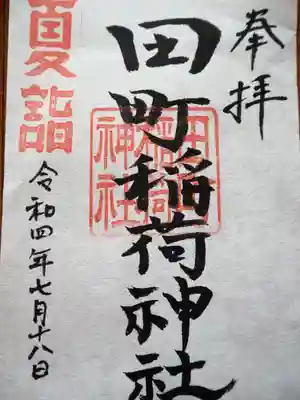 奉拝
田町稲荷神社
田町稲荷神社
夏詣
令和四年七月十八日